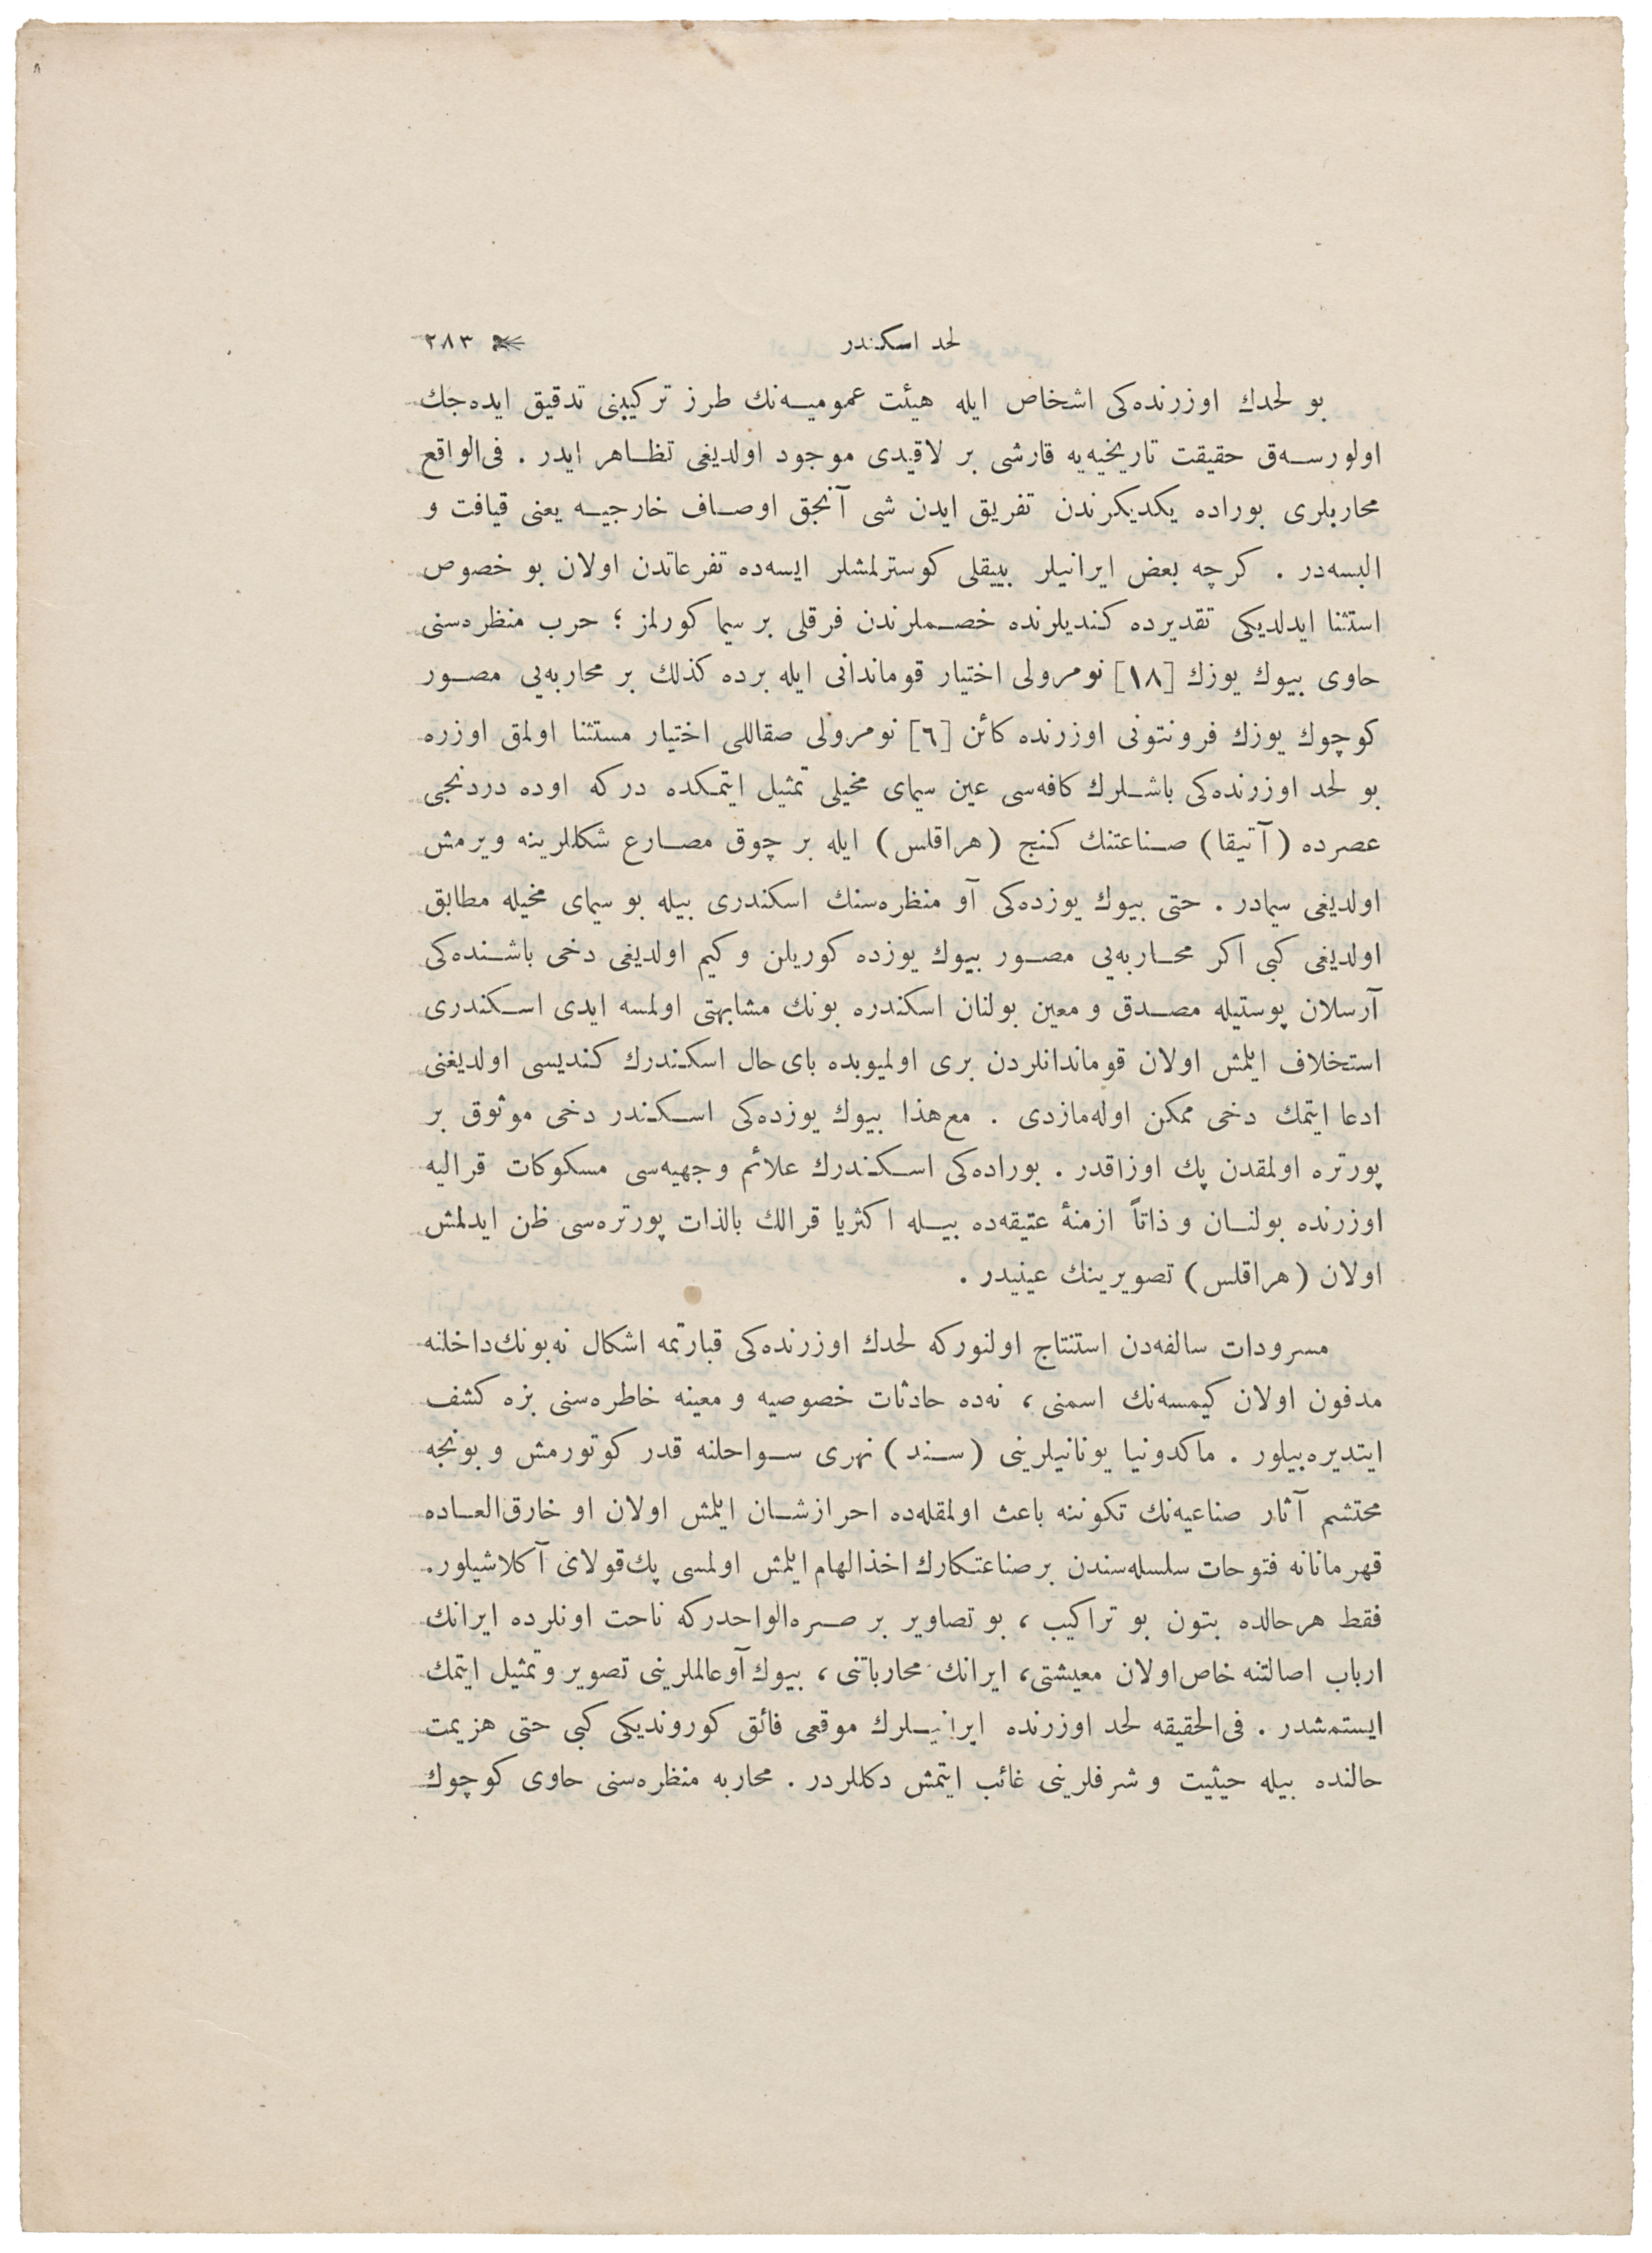 لحد اسكندر ٢٨٣
بو لحدك اوزرنده‌كى اشخاص ايله هيئت عموميه‌نك طرز تركيبنى تدقيق ايده‌جك
اولورسه‌ق حقيقت تاريخيه‌يه قارشى بر لاقيدى موجود اولديغى تظاهر ايدر . فى‌الواقع
محاربلرى بوراده يكديكرندن تفريق ايدن شى آنجق اوصاف خارجيه يعنى قيافت و
البسه‌در . كرچه بعض ايرانيلر بييقلى كوسترلمشلر ايسه‌ده تفرعاتدن اولان بو خصوص
استثنا ايدلديكى تقديرده كنديلرنده خصملرندن فرقلى بر سيما كورلمز ؛ حرب منظره‌سنى
حاوى بيوك يوزك [١٨] نومرولى اختيار قوماندانى ايله برده كذلك بر محاربه‌يى مصور
كوچوك يوزك فرونتونى اوزرنده كائن [٦] نومرولى صقاللى اختيار مستثنا اولمق اوزره
بو لحد اوزرنده‌كى باشلرك كافه‌سى عين سيماى مخيلى تمثيل ايتمكده در كه اوده دردنجى
عصرده (آتيقا) صناعتنك كنج (هراقلس) ايله بر چوق مصارع شكللرينه ويرمش
اولديغى سيمادر . حتى بيوك يوزده‌كى آو منظره‌سنك اسكندرى بيله بو سيماى مخيله مطابق
اولديغى كبى اكر محاربه‌يى مصور بيوك يوزده كوريلن و كيم اولديغى دخى باشنده‌كى
آرسلان پوستيله مصدق و معين بولنان اسكندره بونك مشابهتى اولمسه ايدى اسكندرى
استخلاف ايلمش اولان قوماندانلردن برى اولميوبده باى حال اسكندرك كنديسى اولديغنى
ادعا ايتمك دخى ممكن اوله‌مازدى . مع‌هذا بيوك يوزده‌كى اسكندر دخى موثوق بر
پورتره اولمقدن پك اوزاقدر . بوراده‌كى اسكندرك علائم وجهيه‌سى مسكوكات قراليه
اوزرنده بولنان و ذاتاً ازمنهٔ عتيقه‌ده بيله اكثريا قرالك بالذات پورتره‌سى ظن ايدلمش
اولان (هراقلس) تصويرينك عينيدر .
مسرودات سالفه‌دن استنتاج اولنوركه لحدك اوزرنده‌كى قبارتمه اشكال نه‌بونك‌داخلنه
مدفون اولان كيمسه‌نك اسمنى ، نه‌ده حادثات خصوصيه و معينه خاطره‌سنى بزه كشف
ايتديره‌بيلور . ماكدونيا يونانيلرينى (سند) نهرى سواحلنه قدر كوتورمش و بونجه
محتشم آثار صناعيه‌نك تكوننه باعث اولمقله‌ده احراز شان ايلمش اولان او خارق‌العاده
قهرمانانه فتوحات سلسله‌سندن بر صناعتكارك اخذ الهام ايلمش اولمسى پك‌قولاى آكلاشيلور.
فقط هر حالده بتون بو تراكيب ، بو تصاوير بر صره‌الواحدركه ناحت اونلرده ايرانك
ارباب اصالتنه خاص‌اولان معيشتى، ايرانك محارباتنى ، بيوك آوعالملرينى تصوير و تمثيل ايتمك
ايستمشدر . فى‌الحقيقه لحد اوزرنده ايرانيلرك موقعى فائق كورونديكى كبى حتى هزيمت
حالنده بيله حيثيت و شرفلرينى غائب ايتمش دكللردر . محاربه منظره‌سنى حاوى كوچوك